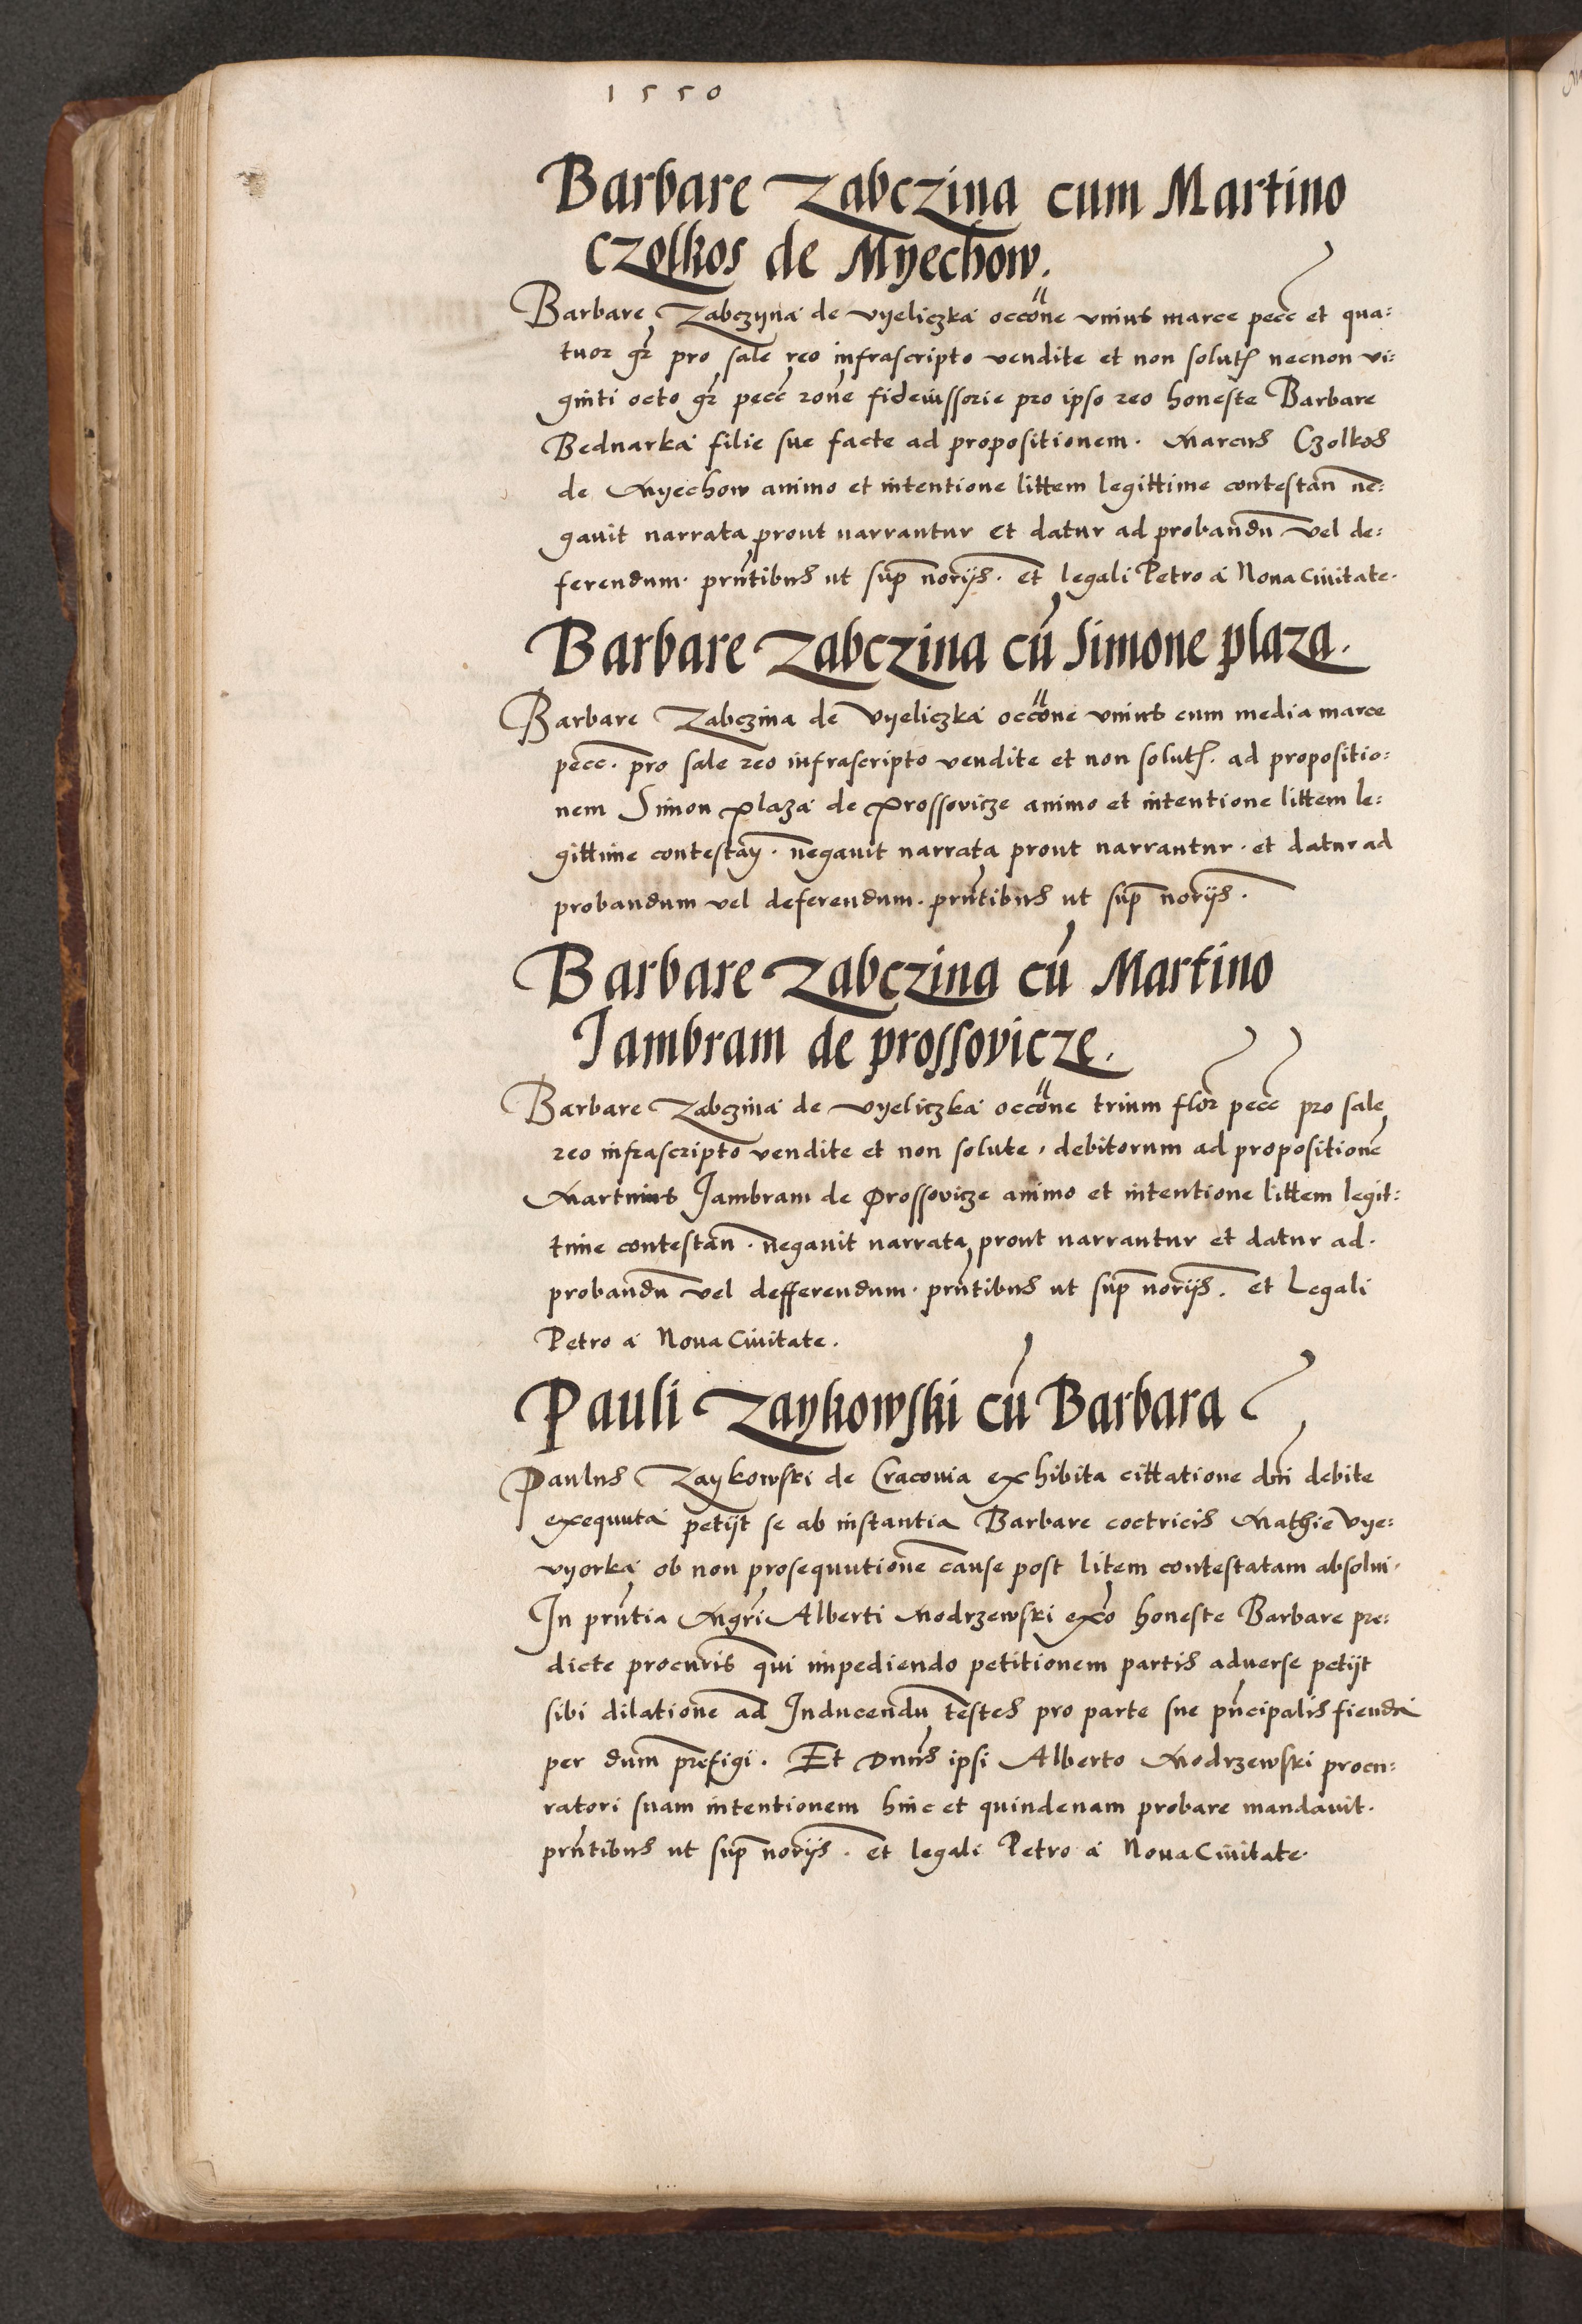 1550
Barbare Zabczina cum Martino
czolkos de Myechow.
Barbare Zabczyna de Vyeliczka occōne vnius marce pecc et qua:
tuor gr pro sale reo infrascripto vendite et non solut necnon vi:
ginti octo gr pecc rōne fideiussorie pro ipso reo honeste Barbare
Bednarka filie sue facte ad propositionem. Marcus Czolkos
de Myechow animo et intentione littem legittime contestan ne:
gauit narrata prout narrantur et datur ad probandū vel de:
ferendum. pñtibus ut sup norijs. et legali Petro a Noua Ciuitate.
Barbare Zabczina cū Simone plaza.
Barbare Zabczina de Vyeliczka occōne vnius cum media marce
pecc. pro sale reo infrascripto vendite et non solut. ad propositio:
nem Simon plaza de Prossovicze animo et intentione littem le:
gittime contestan. negauit narrata prout narrantur. et datur ad
probandum vel deferendum. prñtibus ut sup norijs.
Barbare Zabczina cū Martino
Jambram de prossovicze.
Barbare Zabczina de Vyeliczka occōne trium flor pecc pro sale
reo infrascripto vendite et non solute, debitorum ad propositionē
Martinus Jambram de Prossovicze animo et intentione littem legit:
time contestan. negauit narrata prout narrantur et datur ad.
probandū vel defferendum. prñtibus ut sup norijs. et Legali
Petro a Noua Ciuitate.
Pauli Zaykowski cū Barbara
Paulus Zaykowski de Cracouia exhibita cittatione dni debite
exequuta petijt se ab instantia Barbare coctricis Mathie Vye:
vyorka ob non prosequutionē cause post litem contestatam absolui.
In prñtia Mgri Alberti Modrzewski exō honeste Barbare pre:
dicte procuris qui impediendo petitionem partis aduerse petijt
sibi dilationē ad Inducendū testes pro parte sue pñcipalis fienda
per dum prefigi. Et Dnus ipsi Alberto Modrzewski procu:
ratori suam intentionem hinc et quindenam probare mandauit.
prñtibus ut sup norijs. et legali Petro a Noua Ciuitate.